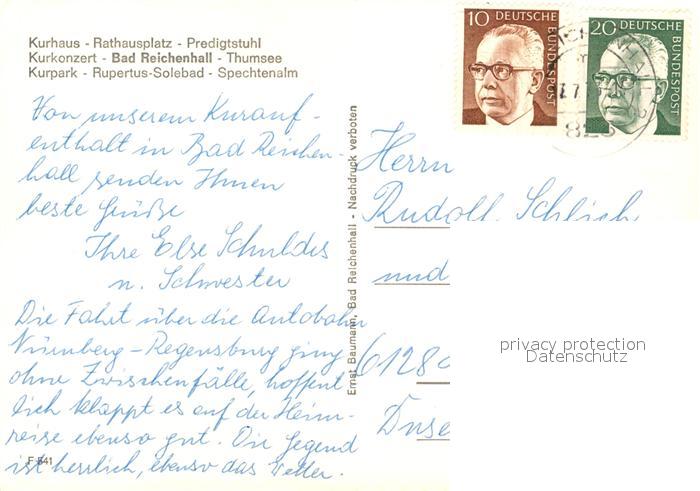 Kurhaus - Rathausplatz - Predigtstuhl
Kurkonzert - Bad Reichenhall - Thumsee
Kurpark - Rupertus-Solebad - Spechtenalm
Von unserem Kurauf-
enthalt in Bad Reichen-
hall senden Ihnen
beste Grüße
Ihre Else Schuldes
u. Schwester
Die Fahrt über die Autobahn
Nürnberg - Regensburg ging
ohne Zwischenfälle, hoffent
lich klappt es auf der Heim-
reise ebenso gut. Die Gegend
ist herrlich, ebenso das Wetter.
F 541
Ernst Baumann, Bad Reichenhall - Nachdruck verboten
10 DEUTSCHE BUNDESPOST
20 DEUTSCHE BUNDESPOST
Herrn
Rudolf
und
privacy protection
Datenschutz